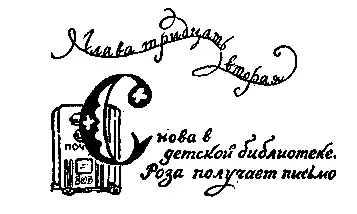 Глава тридцать
вторая
Снова в
детской библиотеке.
Роза получает письмо